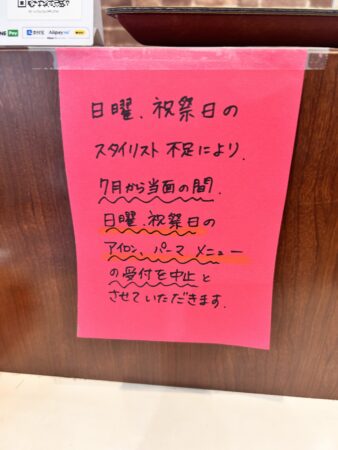 Pay
支付宝
Alipay
日曜、祝祭日の
スタイリスト不足により、
7月から当面の間、
日曜、祝祭日の
アイロン、パーマ メニュー
の受付を中止と
させていただきます。